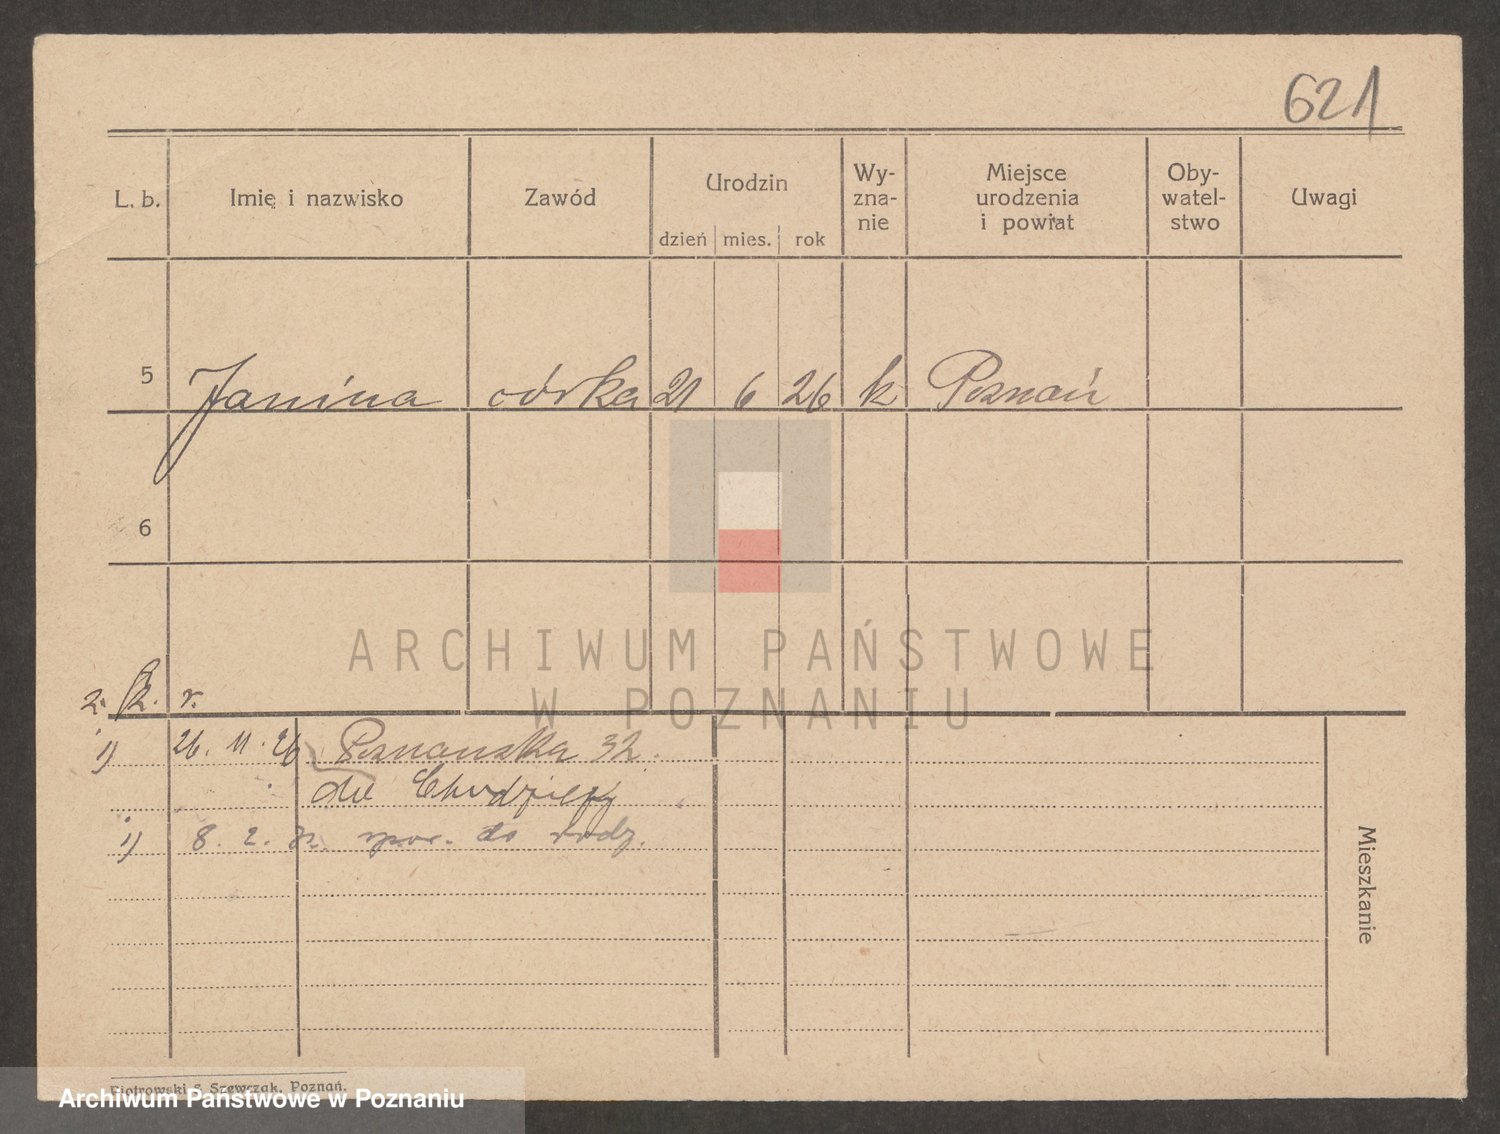 621
L. b. Imię i nazwisko Zawód Urodzin Wy-zna-nie Miejsce urodzenia i powiat Oby-watel-stwo Uwagi
dzień mies. rok
5 Janina córka 21 6 26 k Poznań
6
ARCHIWUM PAŃSTWOWE
W POZNANIU
2. k. r.
1) 26. 11. 26 Poznańska 32.
do Chodzieży
1) 8. 2. do rodz.
Mieszkanie
Piotrowski & Szewczak, Poznań.
Archiwum Państwowe w Poznaniu